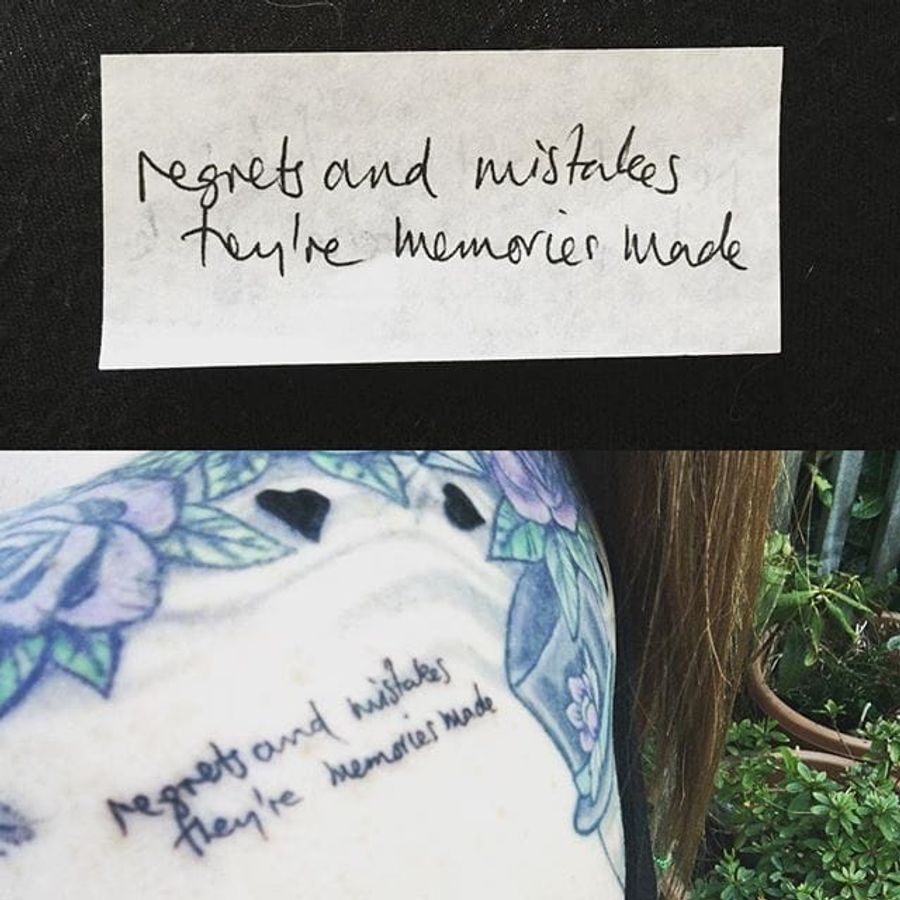 regrets and mistakes
they're memories made
regrets and mistakes
they're memories made